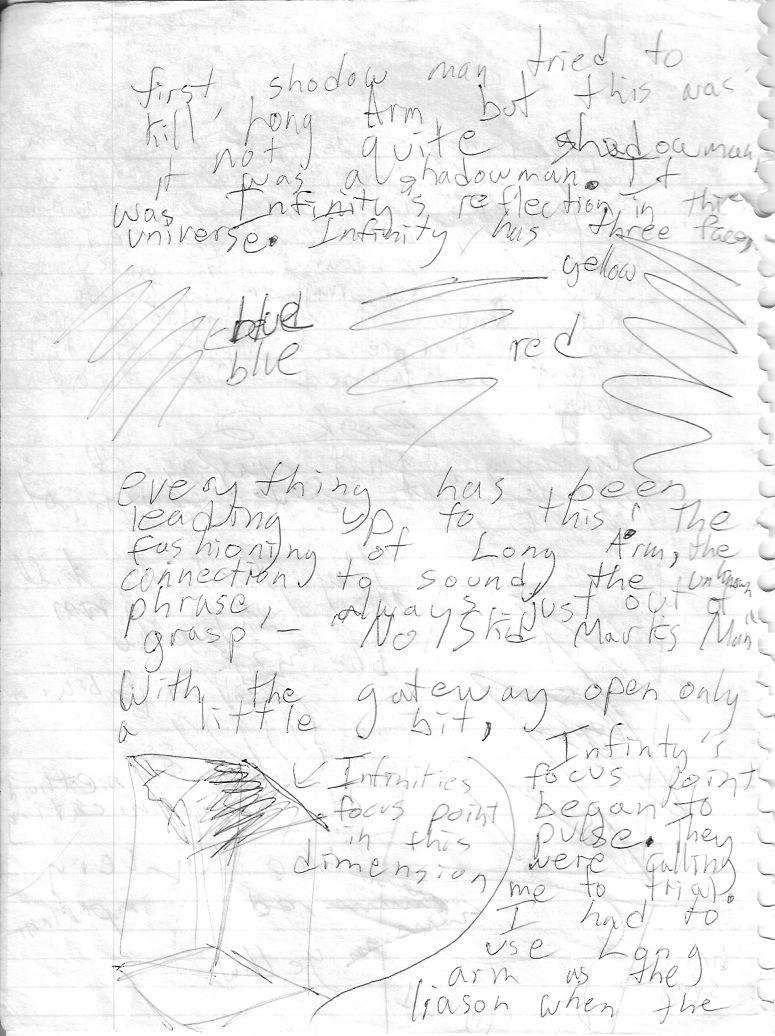 first, shodow man tried to
kill Long Arm, but this was
not quite shadowman,
it was a shadowman. It
was Infinity's reflection in this
universe. Infinity has three faces,
yellow
blue
blue
red
everything has been
leading up to this: The
fashioning of Long Arm, the
connection to sound, the unknown
phrase, always just out of
grasp - "No Skid Marks Man"
With the gateway open only
a little bit,
Infinities
focus point
in this
dimension
Infinty's
focus point
began to
pulse. They
were calling
me to trial.
I had to
use Long
arm as the
liason when the